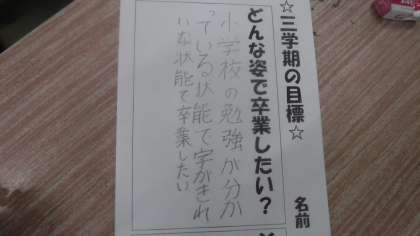 ☆三学期の目標☆
名前
どんな姿で卒業したい？
小学校の勉強が分か
っている状態で字がきれ
いな状態で卒業したい